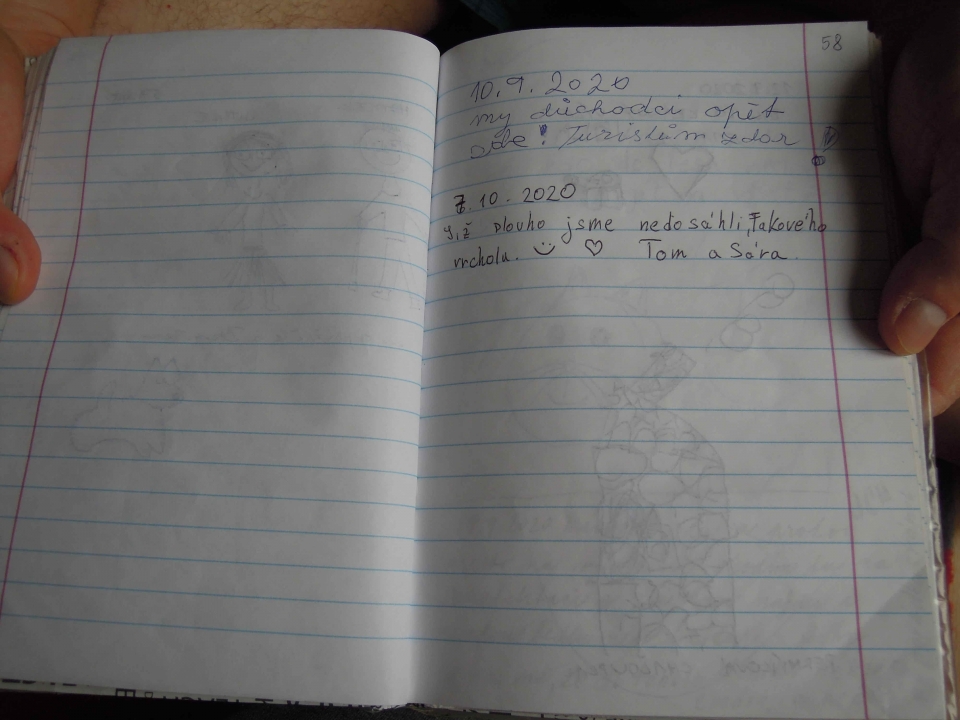 58
10.9.2020
my důchodci opět
zde! Turistům zdar
7.10.2020
Již dlouho jsme nedosáhli takového
vrcholu. Tom a Sára.